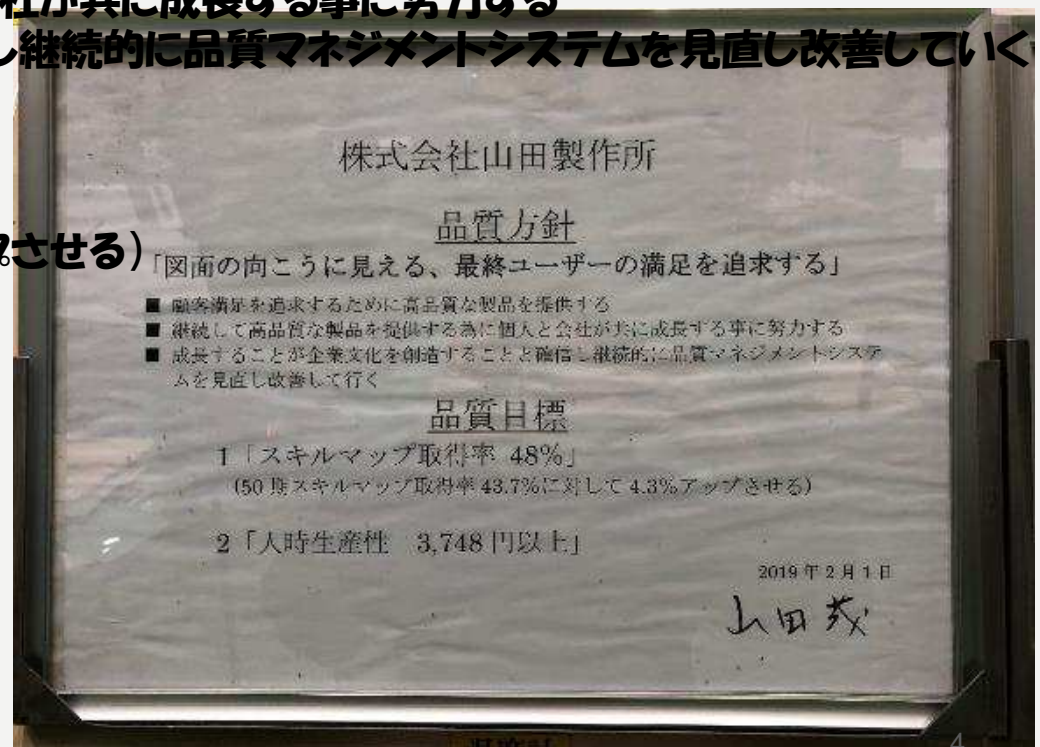 社が共に成長する事に努力する
し継続的に品質マネジメントシステムを見直し改善していく
株式会社山田製作所
品質方針
させる)
「図面の向こうに見える、最終ユーザーの満足を追求する」
■ 顧客満足を追求するために高品質な製品を提供する
■ 継続して高品質な製品を提供する為に個人と会社が共に成長する事に努力する
■ 成長することが企業文化を創造することと確信し継続的に品質マネジメントシステ
ムを見直し改善して行く
品質目標
1「スキルマップ取得率 48%」
(50期スキルマップ取得率 43.7%に対して 4.3%アップさせる)
2「人時生産性 3,748円以上」
2019年2月1日
山田茂
4